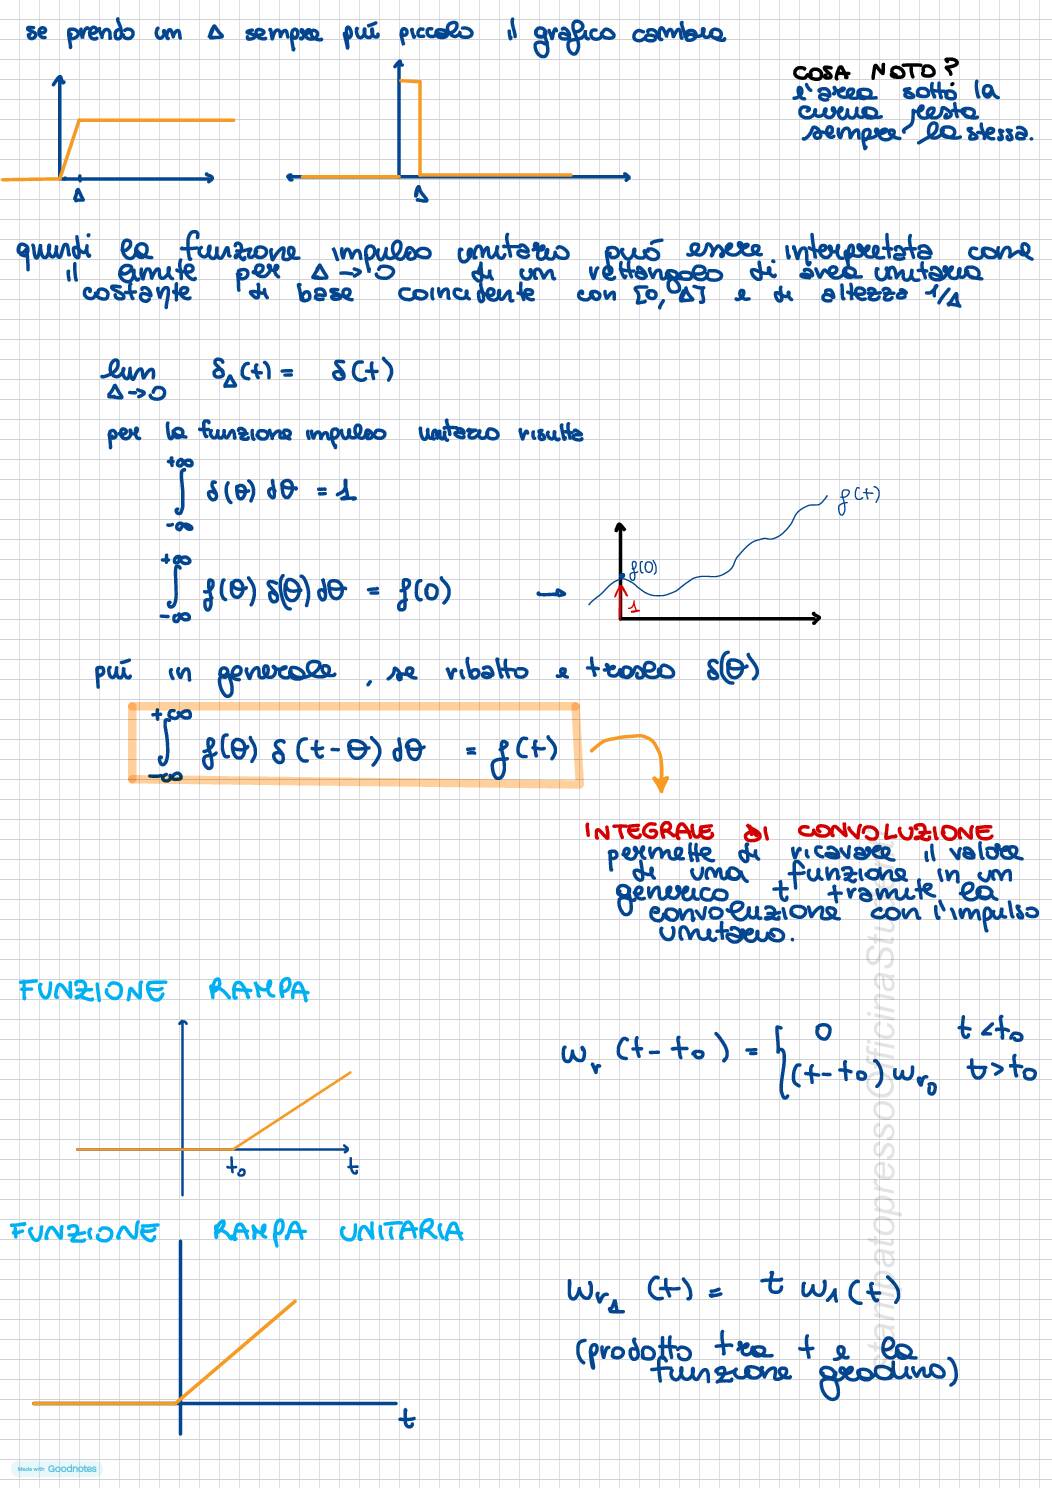 se prendo un Δ sempre puí piccolo il grafico cambia
COSA NOTO?
l'area sotto la
curva resta
sempre la stessa.
Δ
Δ
quindi la funzione impulso unitario puó essere interpretata come
il limite per Δ → 0 di un rettangolo di area unitaria
costante di base coincidente con [0, Δ] e di altezza 1/Δ
lim δ_Δ(t) = δ(t)
Δ→0
per la funzione impulso unitario risulta
+∞
∫ δ(θ) dθ = 1
-∞
+∞
∫ f(θ) δ(θ) dθ = f(0) →
-∞
f(t)
f(0)
1
puí in generale, se ribalto e traslo δ(θ)
+∞
∫ f(θ) δ(t-θ) dθ = f(t)
-∞
INTEGRALE DI CONVOLUZIONE
permette di ricavare il valore
di una funzione in un
generico t tramite la
convoluzione con l'impulso
unitario.
FUNZIONE RAMPA
t₀ t
w_r (t-t₀) = { 0 t<t₀
(t-t₀) w_r₀ t>t₀
FUNZIONE RAMPA UNITARIA
t
w_r₁ (t) = t w₁(t)
(prodotto tra t e la
funzione gradino)
Made with Goodnotes